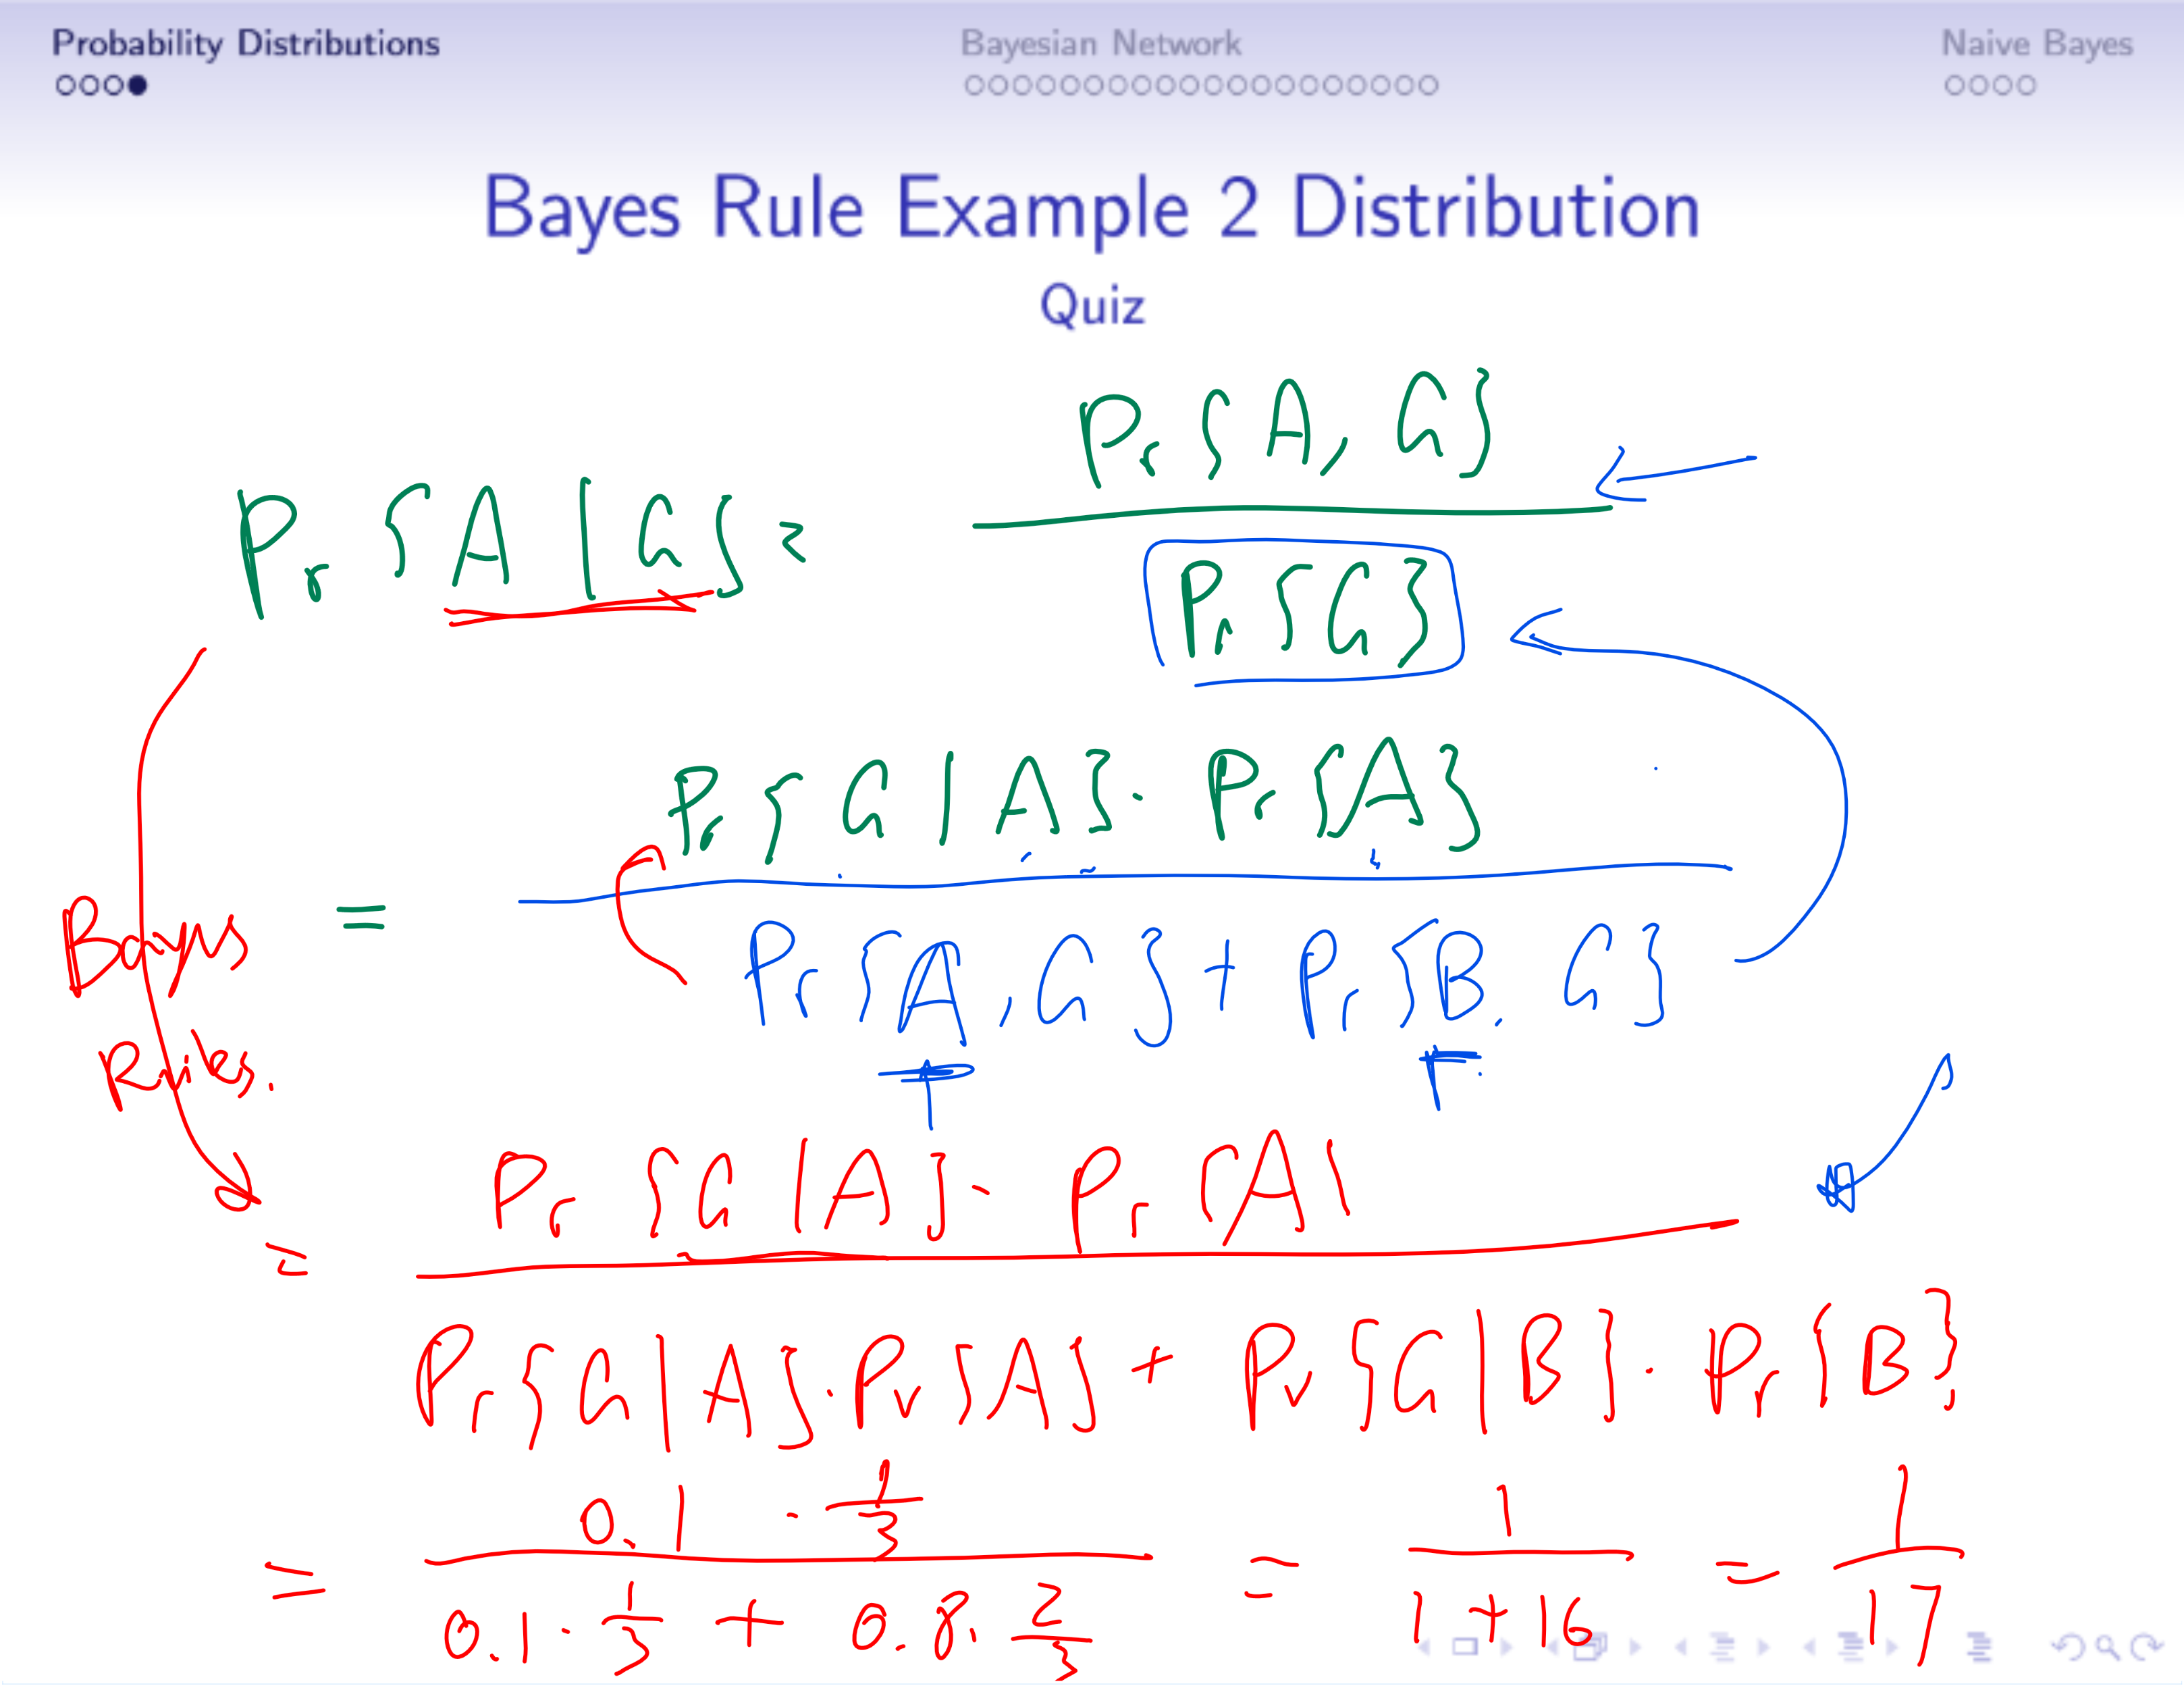 Probability Distributions Bayesian Network Naive Bayes
Bayes Rule Example 2 Distribution
Quiz
Pr {A | G} = Pr {A, G} / Pr {G}
= Pr {G | A} · Pr {A} / Pr {A, G} + Pr {B, G}
Bayes
Rules.
= Pr {G | A} · Pr {A} / Pr {G | A} · Pr {A} + Pr {G | B} · Pr {B}
= 0.1 · 1/3 / 0.1 · 1/3 + 0.8 · 2/3 = 1 / 1 + 16 = 1 / 17